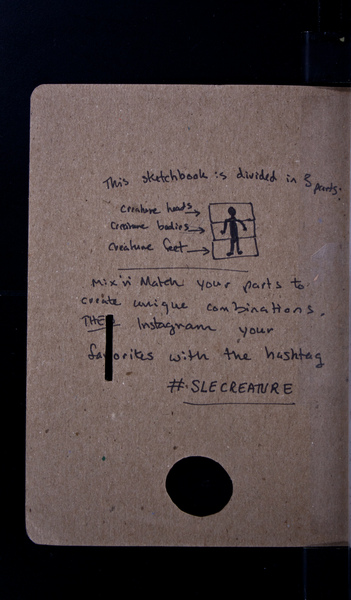 This sketchbook is divided in 3 parts:
creature heads
creature bodies
creature feet
Mix n Match your parts to
create unique combinations.
THEN Instagram your
favorites with the hashtag
#SLECREATURE